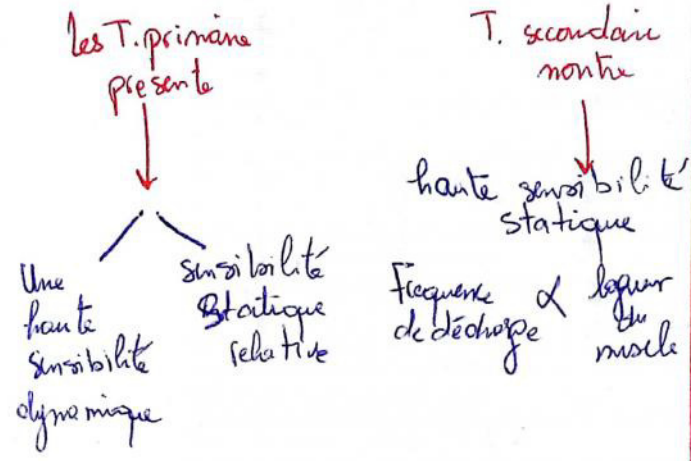 les T. primaire
présente
Une
haute
sensibilité
dynamique
sensibilité
Statique
relative
T. secondaire
montre
haute sensibilité
statique
Frequence
de décharge
∝
longueur
du
muscle